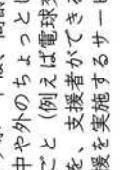 中や外のちょっとし
ごと（例えば電球交
を、支援者ができる
援を実施するサービ